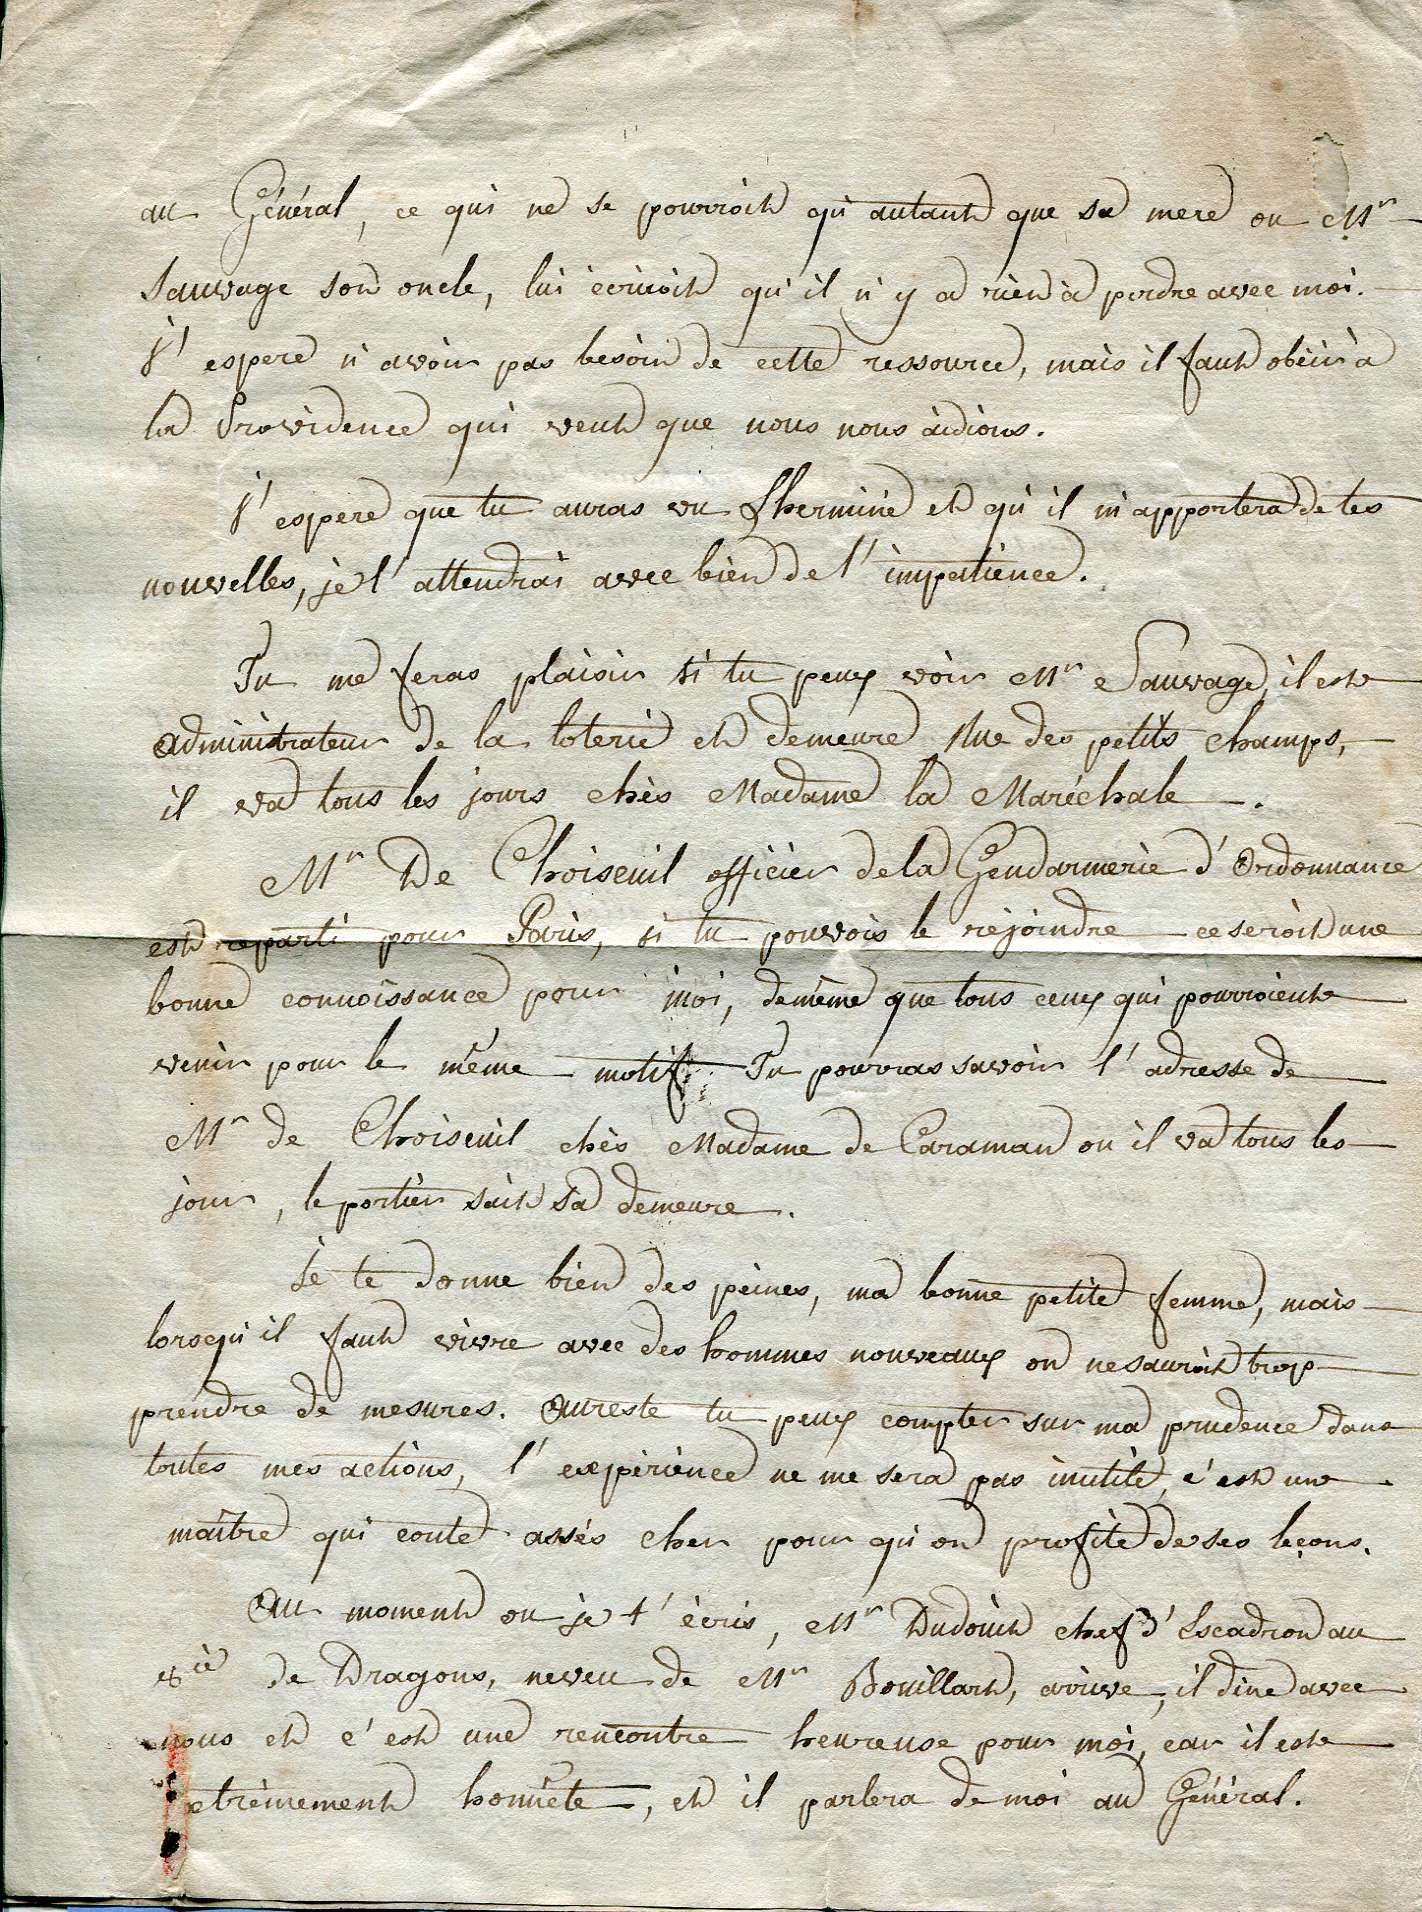 au Général, ce qui ne se pourroit qu'autant que sa mere ou Mr
Sauvage son oncle, lui écriroit qu'il n'y a rien à perdre avec moi.
J'espere n'avoir pas besoin de cette ressource, mais il faut obéir à
la Providence qui veut que nous nous aidions.
J'espere que tu auras vu Lhermine et qu'il m'apportera de tes
nouvelles, je l'attendrai avec bien de l'impatience.
Tu me feras plaisir si tu peux voir Mr Sauvage, il est
administrateur de la loterie et demeure Rue des petits champs,
il va tous les jours chès Madame la Maréchale.
Mr De Choiseuil officier de la Gendarmerie d'Ordonnance
est reparti pour Paris, si tu pouvois le rejoindre ce seroit une
bonne connoissance pour moi, de même que tous ceux qui pourroient
venir pour le même motif. Tu pourras savoir l'adresse de
Mr de Choiseuil chès Madame de Caraman ou il va tous les
jour, le portier sait sa demeure.
Je te donne bien des peines, ma bonne petite femme, mais
lorsqu'il faut vivre avec des hommes nouveaux on ne sauroit trop
prendre de mesures. Aureste tu peux compter sur ma prudence dans
toutes mes actions, l'expérience ne me sera pas inutile, c'est un
maître qui coute assés cher pour qu'on profite de ses leçons.
Au moment ou je t'écris, Mr Dudouit chef d'Escadron au
de Dragons, neveu de Mr Bouillard, arrive, il dine avec
nous et c'est une rencontre heureuse pour moi, car il est
extrêmement honnête, et il parlera de moi au Général.